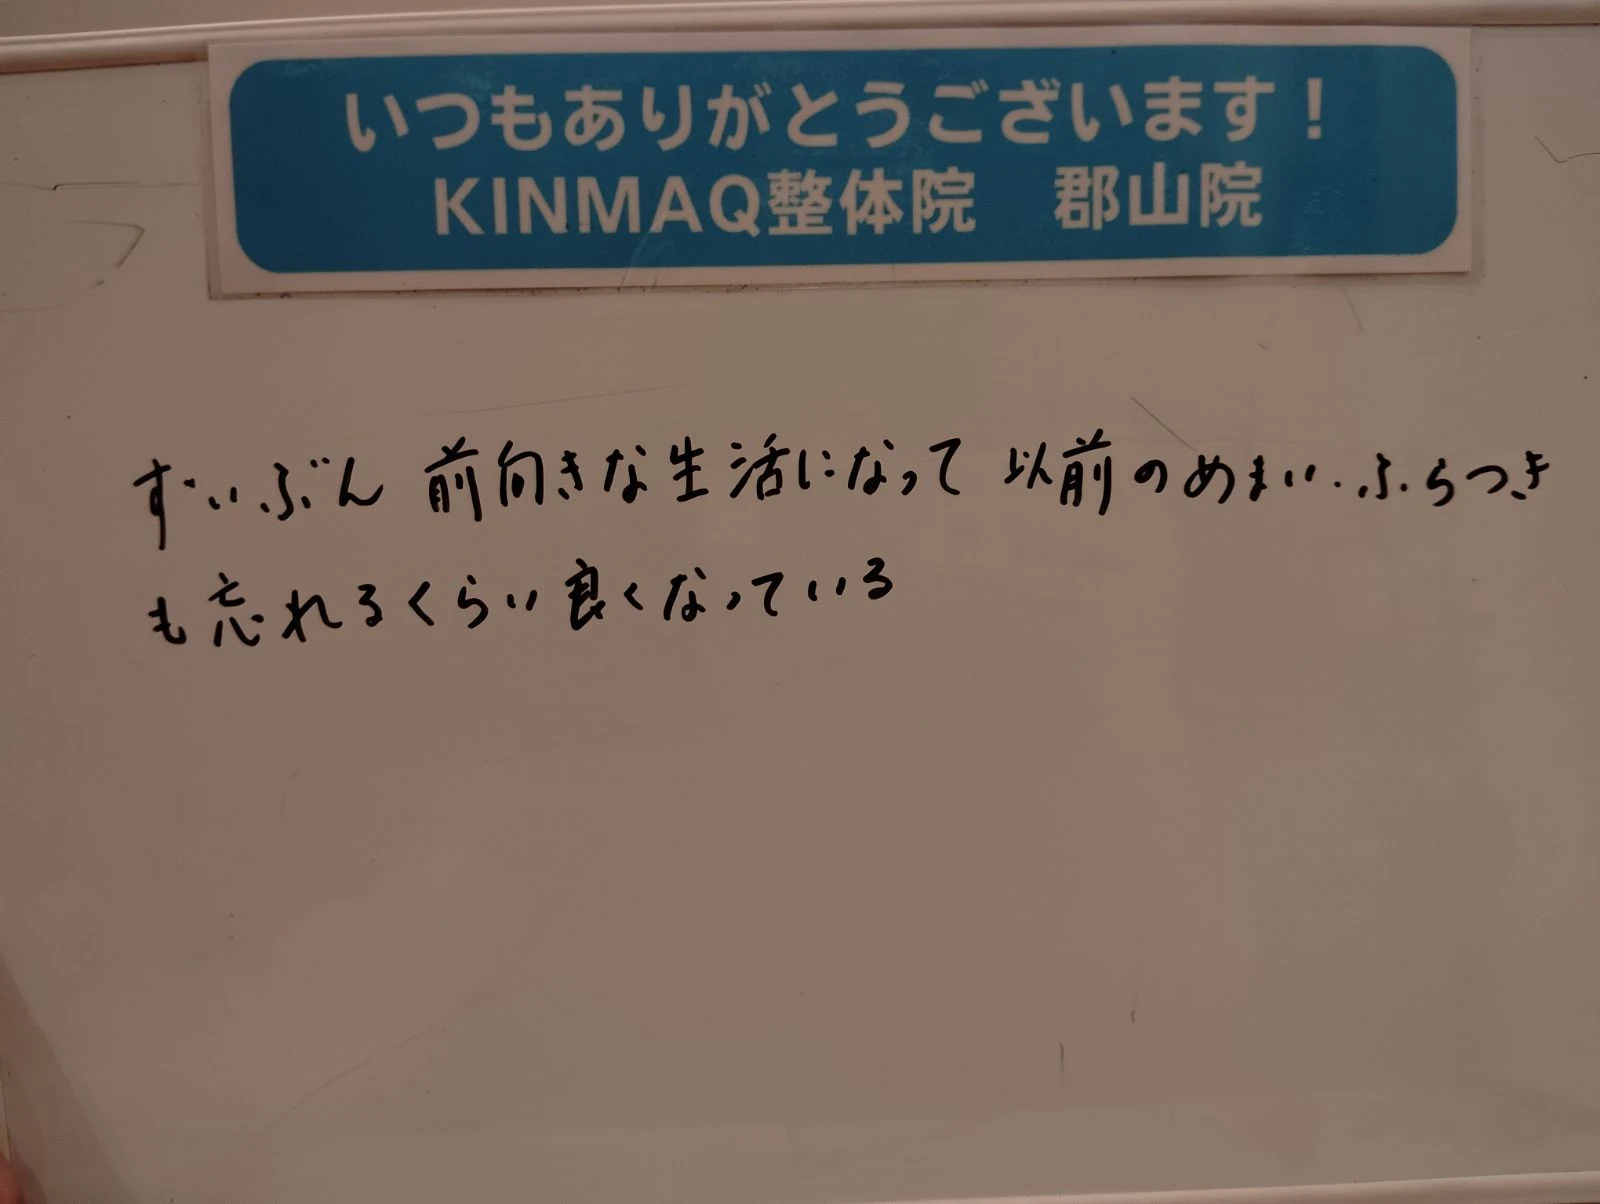 いつもありがとうございます！
KINMAQ整体院　郡山院
ずいぶん 前向きな生活になって 以前のめまい・ふらつき
も忘れるくらい良くなっている